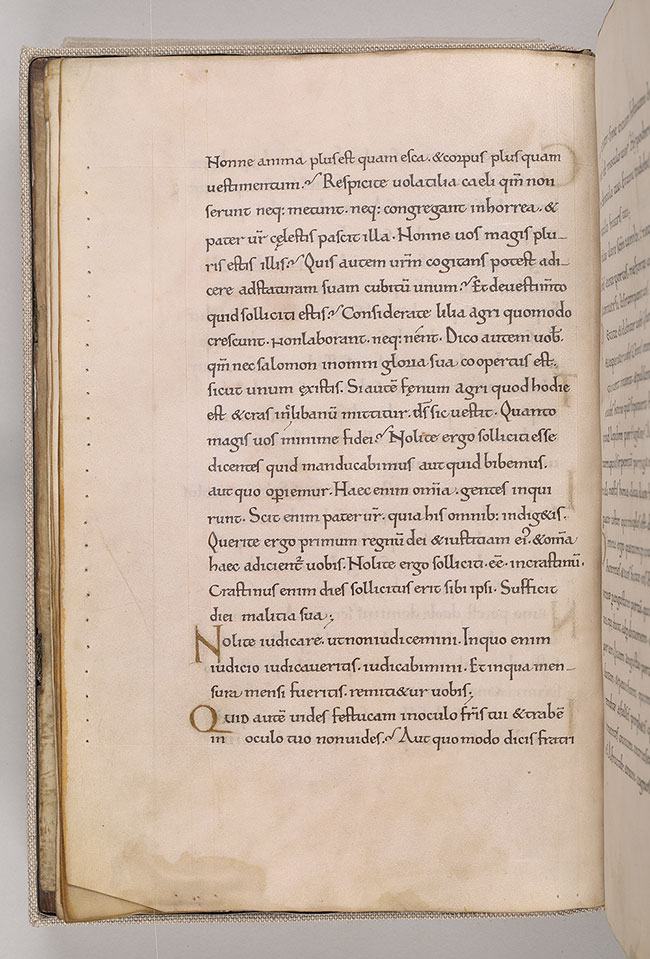 Nonne anima plus est quam esca. & corpus plus quam
uestimentum. Respicite uolatilia caeli qm̄ non
serunt neq: metunt. neq: congregant in horrea. &
pater ur̄ cęlestis pascit illa. Nonne uos magis plu-
ris estis illis. Quis autem urm̄ cogitans potest adi-
cere ad staturam suam cubitū unum. Et de uestim̄to
quid solliciti estis. Considerate lilia agri quomodo
crescunt. non laborant. neq: nent. Dico autem uob̄.
qm̄ nec salomon in omni gloria sua coopertus est.
sicut unum ex istis. Si autē fęnum agri quod hodie
est & cras in clibanū mittitur. ds̄ sic uestit. Quanto
magis uos minime fidei. Nolite ergo solliciti esse
dicentes quid manducabimus aut quid bibemus.
aut quo operiemur. Haec enim om̄ia. gentes inqui
runt. Scit enim pater ur̄. quia his omnib: indig&is.
Querite ergo primum regnū dei & iustitiam ei'. & om̄a
haec adicient̄ uobis. Nolite ergo solliciti. eē. in crastinū.
Crastinus enim dies sollicitus erit sibi ipsi. Sufficit
diei malitia sua;
Nolite iudicare. ut non iudicemini. In quo enim
iudicio iudicaueritis. iudicabimini. Et in qua men-
sura mensi fueritis. remiti&ur uobis;
Quid autē uides festucam in oculo fr̄is tui & trabē
in oculo tuo non uides. Aut quo modo dicis fratri